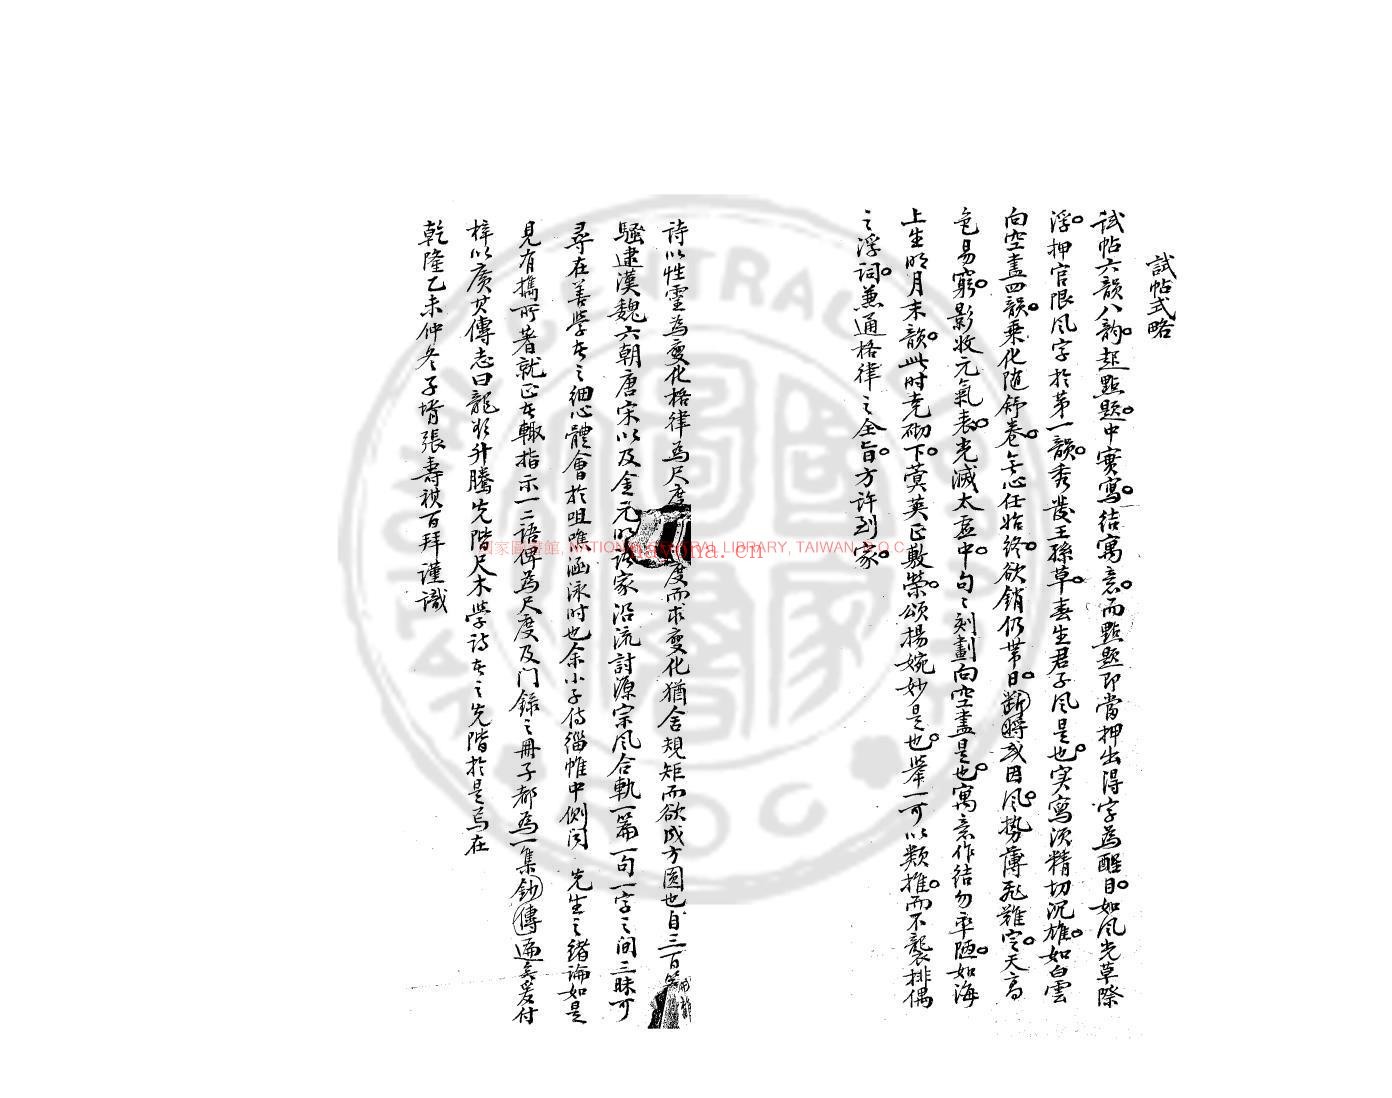 試帖式略
試帖六韻八韵起點題中實寫結寓意而點題即當押出得字為醒目如风光草際
浮押官限风字於第一韻秀發王孫草春生君子风是也实寫須精切沉雄如白雲
向空盡四韻乗化随舒卷無心任始終欲銷仍帶日斷時或因风勢薄飛難定天高
色易窮影收元氣表光滅太虛中句〻刻劃向空盡是也寓意作結勿率陋如海
上生明月末韻此时尭砌下蓂荚正敷榮頌揚婉妙是也舉一可以類推而不襲排偶
之浮词兼通格律之全旨方许到家
詩以性靈為變化格律為尺度 度而求變化猶舍規矩而欲成方圆也自三百
騷逮漢魏六朝唐宋以及金元明諸家沿流討源宗风合軌一篇一句一字之间三昧可
尋在善學者之細心體會於咀嚼涵泳时也余小子侍緇帷中側闻 先生之緒論如是
見有攜所著就正者輙指示一二語俾為尺度及门錄之冊子都為一集鈔傳遍矣爰付
梓以廣其傳志曰龍欲升騰先階尺木學诗者之先階於是焉在
乾隆乙未仲冬子壻張壽祺百拜謹識
國家圖書館, NATIONAL CENTRAL LIBRARY, TAIWAN, R.O.C.